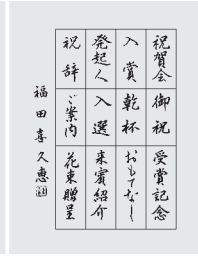 祝賀会 御祝 受賞記念
入賞 乾杯 おもてなし
発起人 入選 来賓紹介
祝辞 ご案内 花束贈呈
福田喜久恵